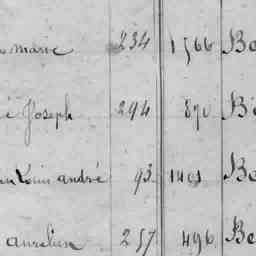 marie 234 1566 Be
é Joseph 294 870 Be
Louis andré 93 1401 Be
aurelien 257 496 Be